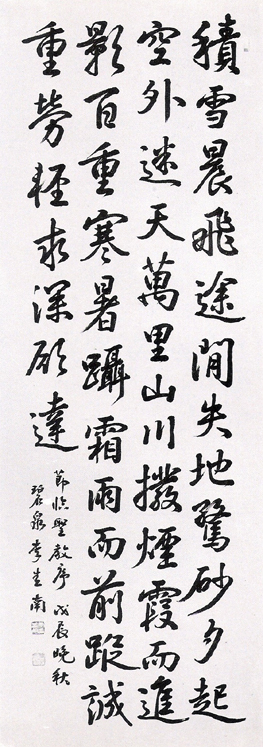 積雪晨飛途閒失地驚砂夕起
空外迷天萬里山川撥煙霞而進
影百重寒暑躡霜雨而前蹤誠
重勞輕求深願達
節臨聖教序 戊辰晚秋
泉 李 南